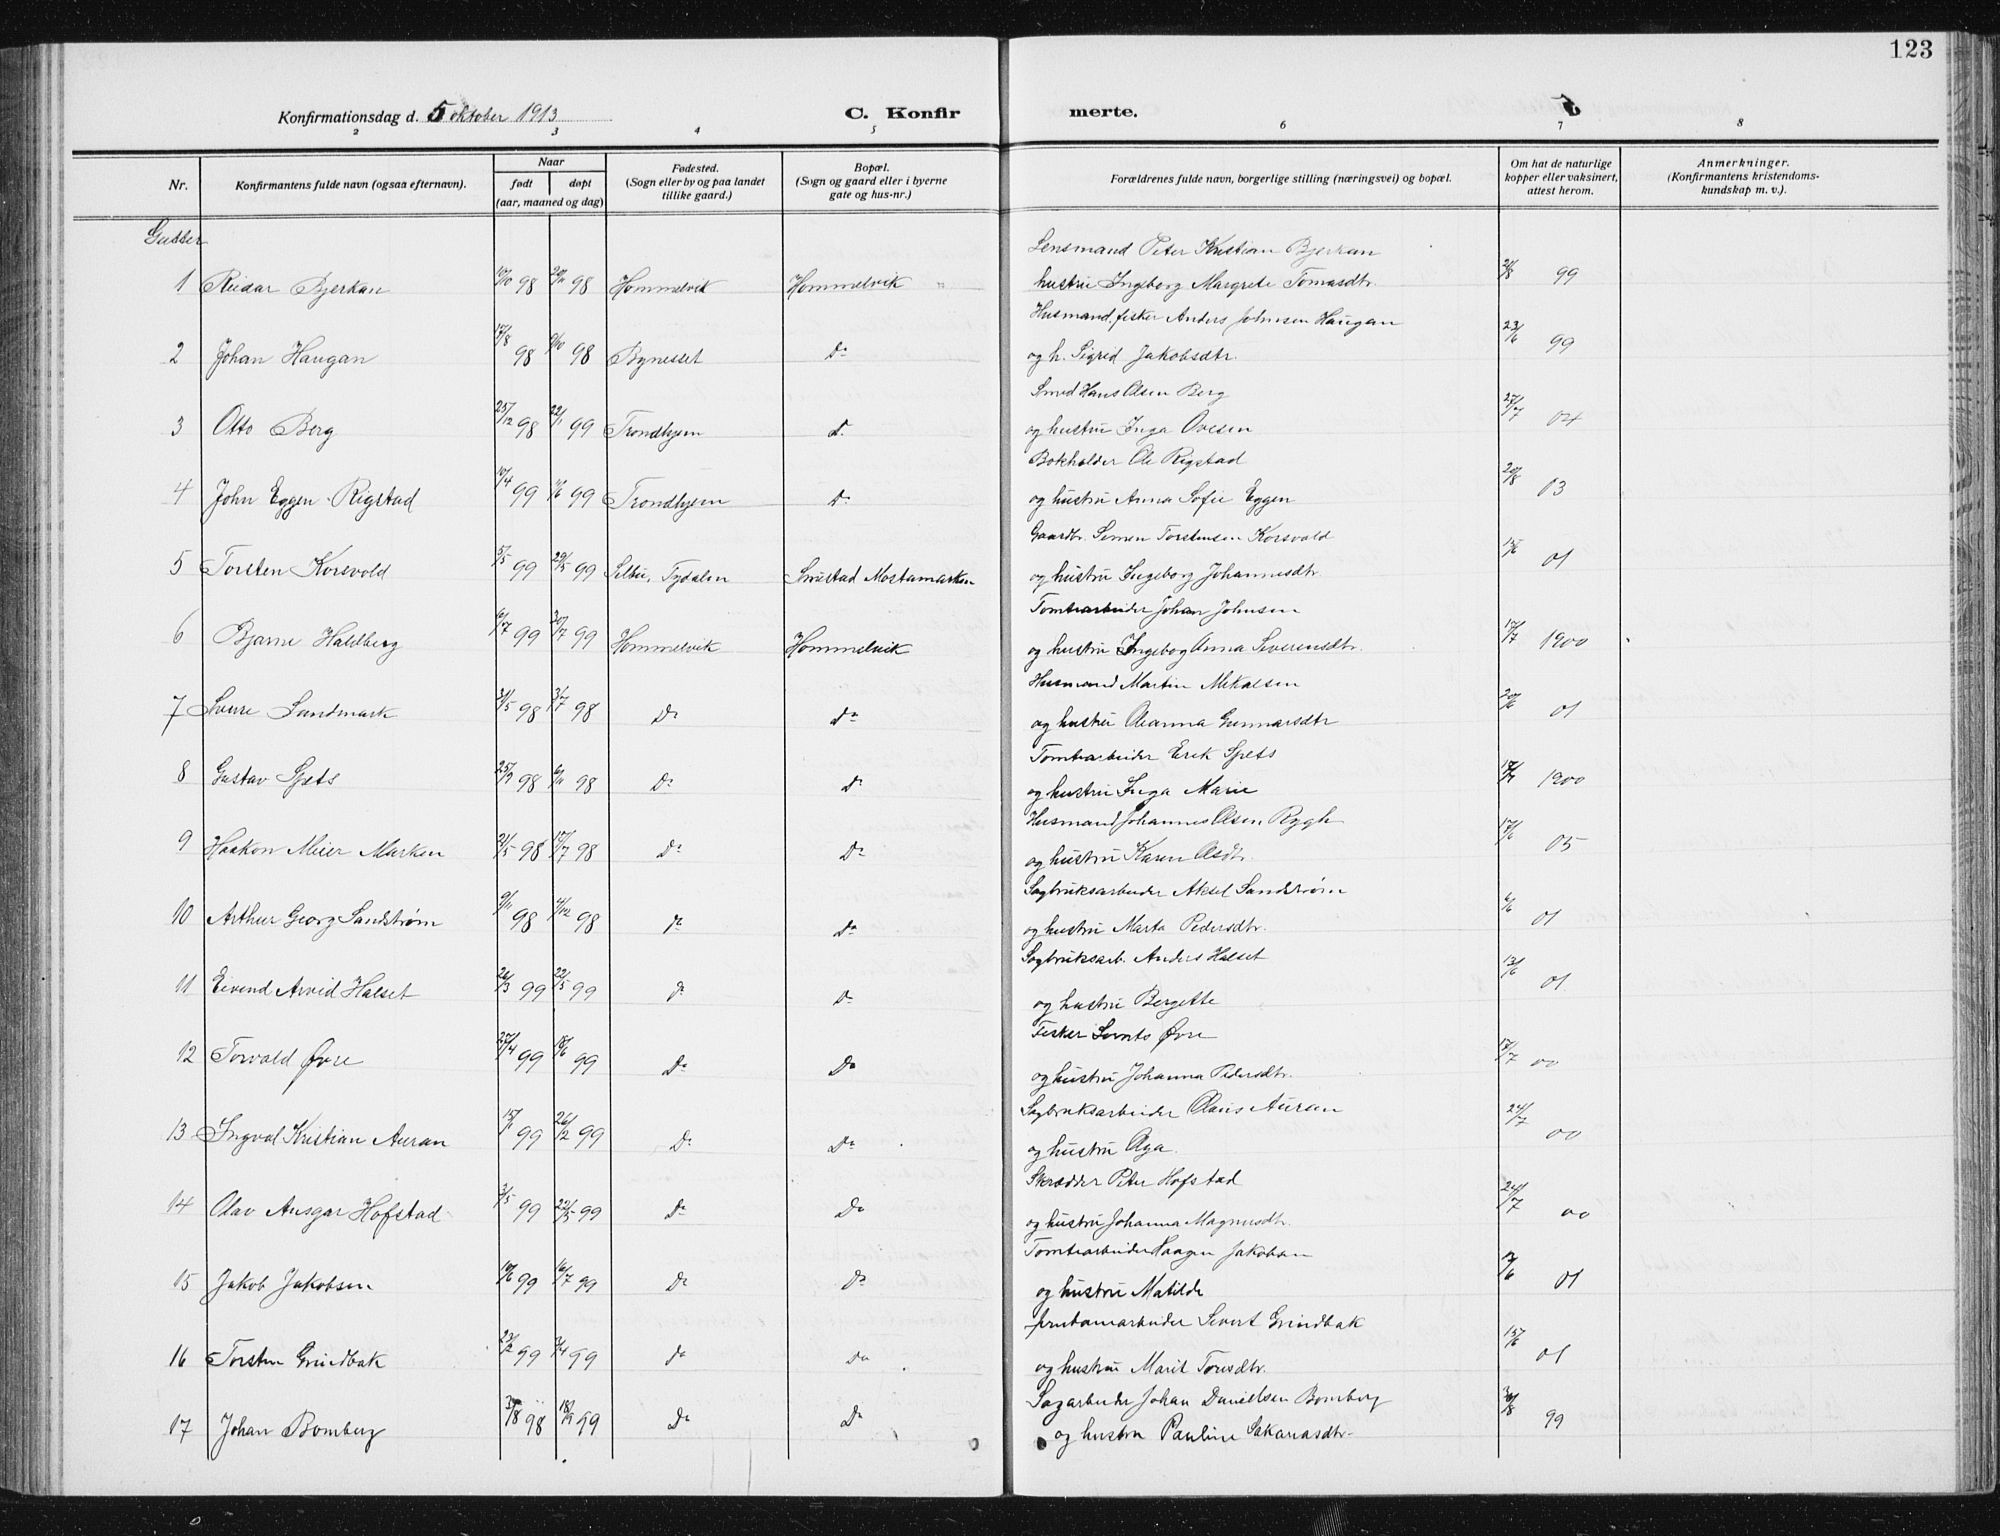 123
Konfirmationsdag d. 5 oktober 1913
C. Konfir
merte.
2 3 4 5 6 7 8
Nr.
Konfirmantens fulde navn (ogsaa efternavn).
Naar
født døpt
(aar, maaned og dag)
Fødested.
(Sogn eller by og paa landet
tillike gaard.)
Bopæl.
(Sogn og gaard eller i byerne
gate og hus-nr.)
Forældrenes fulde navn, borgerlige stilling (næringsvei) og bopæl.
Om hat de naturlige
kopper eller vaksinert,
attest herom.
Anmerkninger.
(Konfirmantens kristendoms-
kundskap m. v.).
Gutter
Lensmand Peter Kristian Bjerkan
1 Reidar Bjerkan 98 98 Hommelvik Hommelvik hustru Ingeborg Margrete Tomasdtr. 99
Husmand, fisker Anders Johnsen Haugan
2 Johan Haugan 17/8 98 9/10 98 Bynesset Do og h. Sigrid Jakobsdtr. 23/6 99
Smed Hans Olsen Berg
3 Otto Berg 25/12 98 22/1 99 Trondhjem D. og hustru Inga Ovesen 27/7 04
Bokholder Ole Rigstad
4 John Eggen Rigstad 10/4 99 99 Trondhjem Do og hustru Anna Sofie Eggen 20/8 03
Gaardbr. Simen Torstensen Korsvold
5 Torsten Korsvold 5/5 99 29/5 99 Selbu, Tydalen Smistad Mostamarken og hustru Ingeborg Johannesdtr. 15/6 01
Tomtearbeider Johan Johnsen
6 Bjarne Haldberg 6/7 99 30/7 99 Hommelvik Hommelvik og hustru Ingebog Anna Severensdtr. 17/7 1900
Husmand Martin Mikalsen
7 Sverre Sandmark 31/5 98 3/7 98 Do Do og hustru Oleanna Gunnarsdtr 20/6 01
Tomtearbeider Erik Spets
8 Gustav Spets 25/9 98 6/11 98 Do Do og hustru Inga Marie 17/7 1900
Husmand Johannes Olsen Rygh
9 Haakon Meier Marken 21/5 98 17/7 98 Do Do og hustru Karen Olsdtr. 17/6 05
Sagbruksarbeider Aksel Sandstrøm
10 Arthur Georg Sandstrøm 9/11 98 4/12 98 Do Do og hustru Marta Pedersdtr. 6/6 01
Sagbruksarb. Anders Halset
11 Eivend Arvid Halset 26/3 99 22/5 99 Do Do og hustru Bergette 13/6 01
Fisker Sivert Øvre
12 Torvald Øvre 27/4 99 18/6 99 Do Do og hustru Johanna Pedersdtr. 17/7 00
Sagbruksarbeider Olaus Auran
13 Ingval Kristian Auran 15/1 99 26/2 99 Do Do og hustru Aga. 24/7 00
Skrædder Peter Hofstad
14 Olav Ansgar Hofstad 3/5 99 22/5 99 Do Do og hustru Johanna Magnusdtr. 24/7 00
Tomtearbeider Haagen Jakobsen
15 Jakob Jakobsen 10/6 99 16/7 99 Do Do og hustru Matilde 01
Sivert Grindbak
16 Torsten Grindbak 23/2 99 3/4 99 Do Do og hustru Marit Toresdtr. 15/6 01
Sagarbeider Johan Danielsen Bomberg
17 Johan Bomberg 98 99 Do Do og hustru Pauline Sakariasdtr. 30/8 99